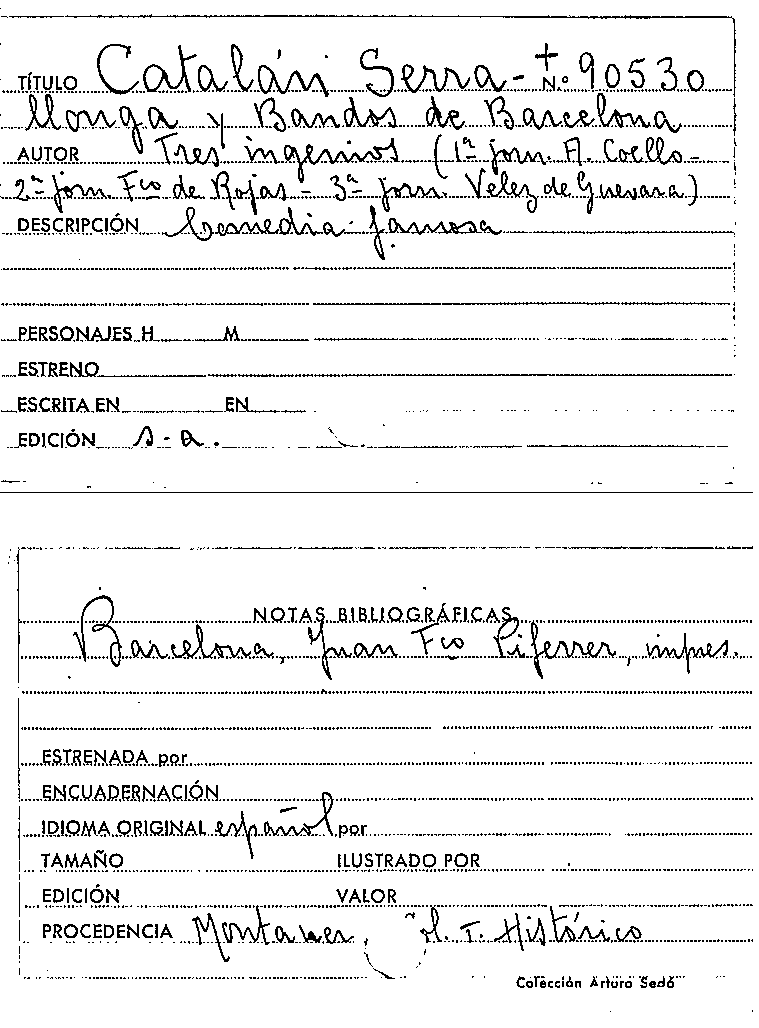 TÍTULO Catalán Serra- + N.º 90530
llonga y Bandos de Barcelona
AUTOR Tres ingenios (1ª jorn. A. Coello-
2ª jorn. Fco de Rojas - 3ª jorn. Velez de Guevara)
DESCRIPCIÓN Comedia famosa
PERSONAJES H M
ESTRENO
ESCRITA EN EN
EDICIÓN s-a.
NOTAS BIBLIOGRÁFICAS
Barcelona, Juan Fco Piferrer, impres.
ESTRENADA por
ENCUADERNACIÓN
IDIOMA ORIGINAL español por
TAMAÑO ILUSTRADO POR
EDICIÓN VALOR
PROCEDENCIA Montaner, T. Histórico
Colección Arturo Sedó